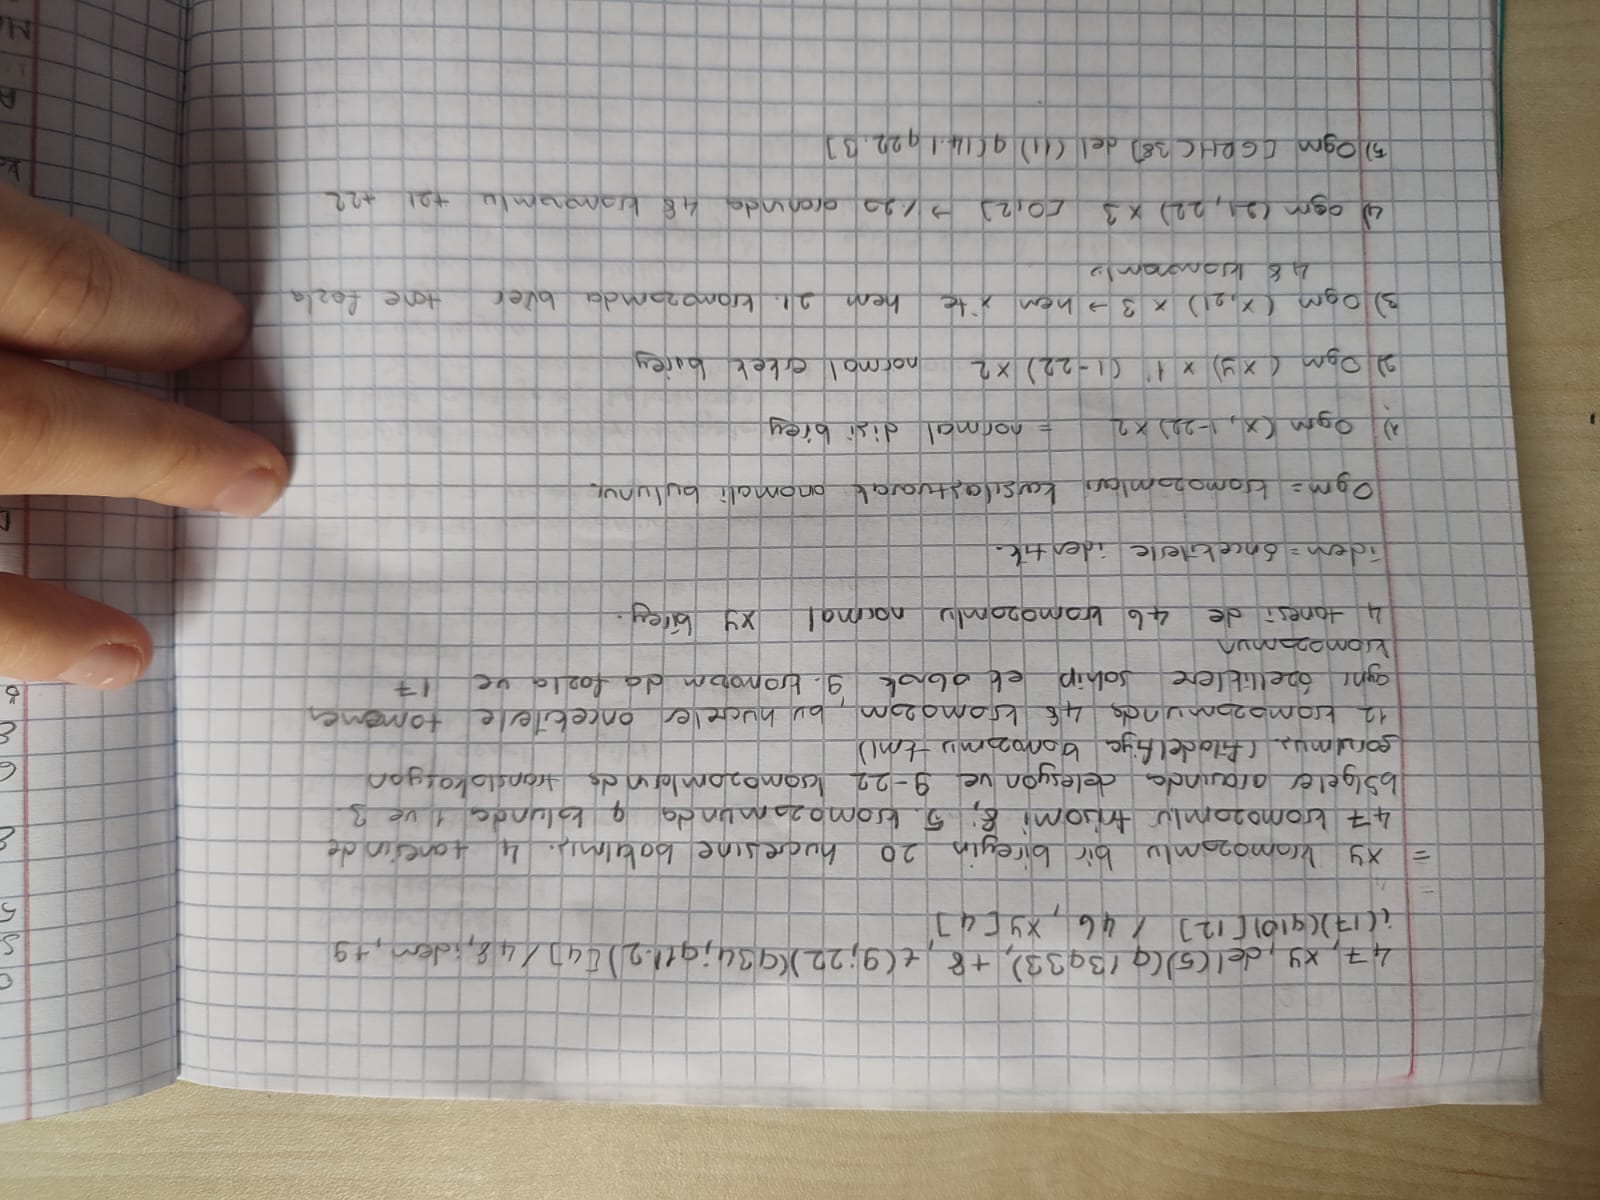 47, xy, del(5)(q13q33), +8, t(9;22)(q34;q11.2)[4] / 48, idem, +9
i(17)(q10)[12] / 46, xy[4]
= xy kromozomlu bir bireyin 20 hücresine bakılmış. 4 tanesinde
47 kromozomlu trisomi 8, 5. kromozomunda q kolunda 1 ve 3.
bölgeler arasında delesyon ve 9-22 kromozomlarında translokasyon
görülmüş. (filadelfiya kromozomu tml)
12 kromozomunda 48 kromozom, bu hücreler öncekilerle tamamen
aynı özelliklere sahip ek olarak 9. kromozom da fazla ve 17
kromozomun
4 tanesi de 46 kromozomlu normal xy birey.
idem = öncekilerle identik.
Ogm = kromozomları karşılaştırarak anomali bulunur.
1) Ogm (x, 1-22) x2 = normal dişi birey
2) Ogm (xy) x 1, (1-22) x2 normal erkek birey
3) Ogm (x,21) x 3 → hem x'te hem 21. kromozomda birer tane fazla
48 kromozomlu
4) Ogm (21, 22) x 3 [0,2] → %20 oranında 48 kromozomlu +21 +22
5) Ogm [GRHC38] del (11) q(14.1q22.3]